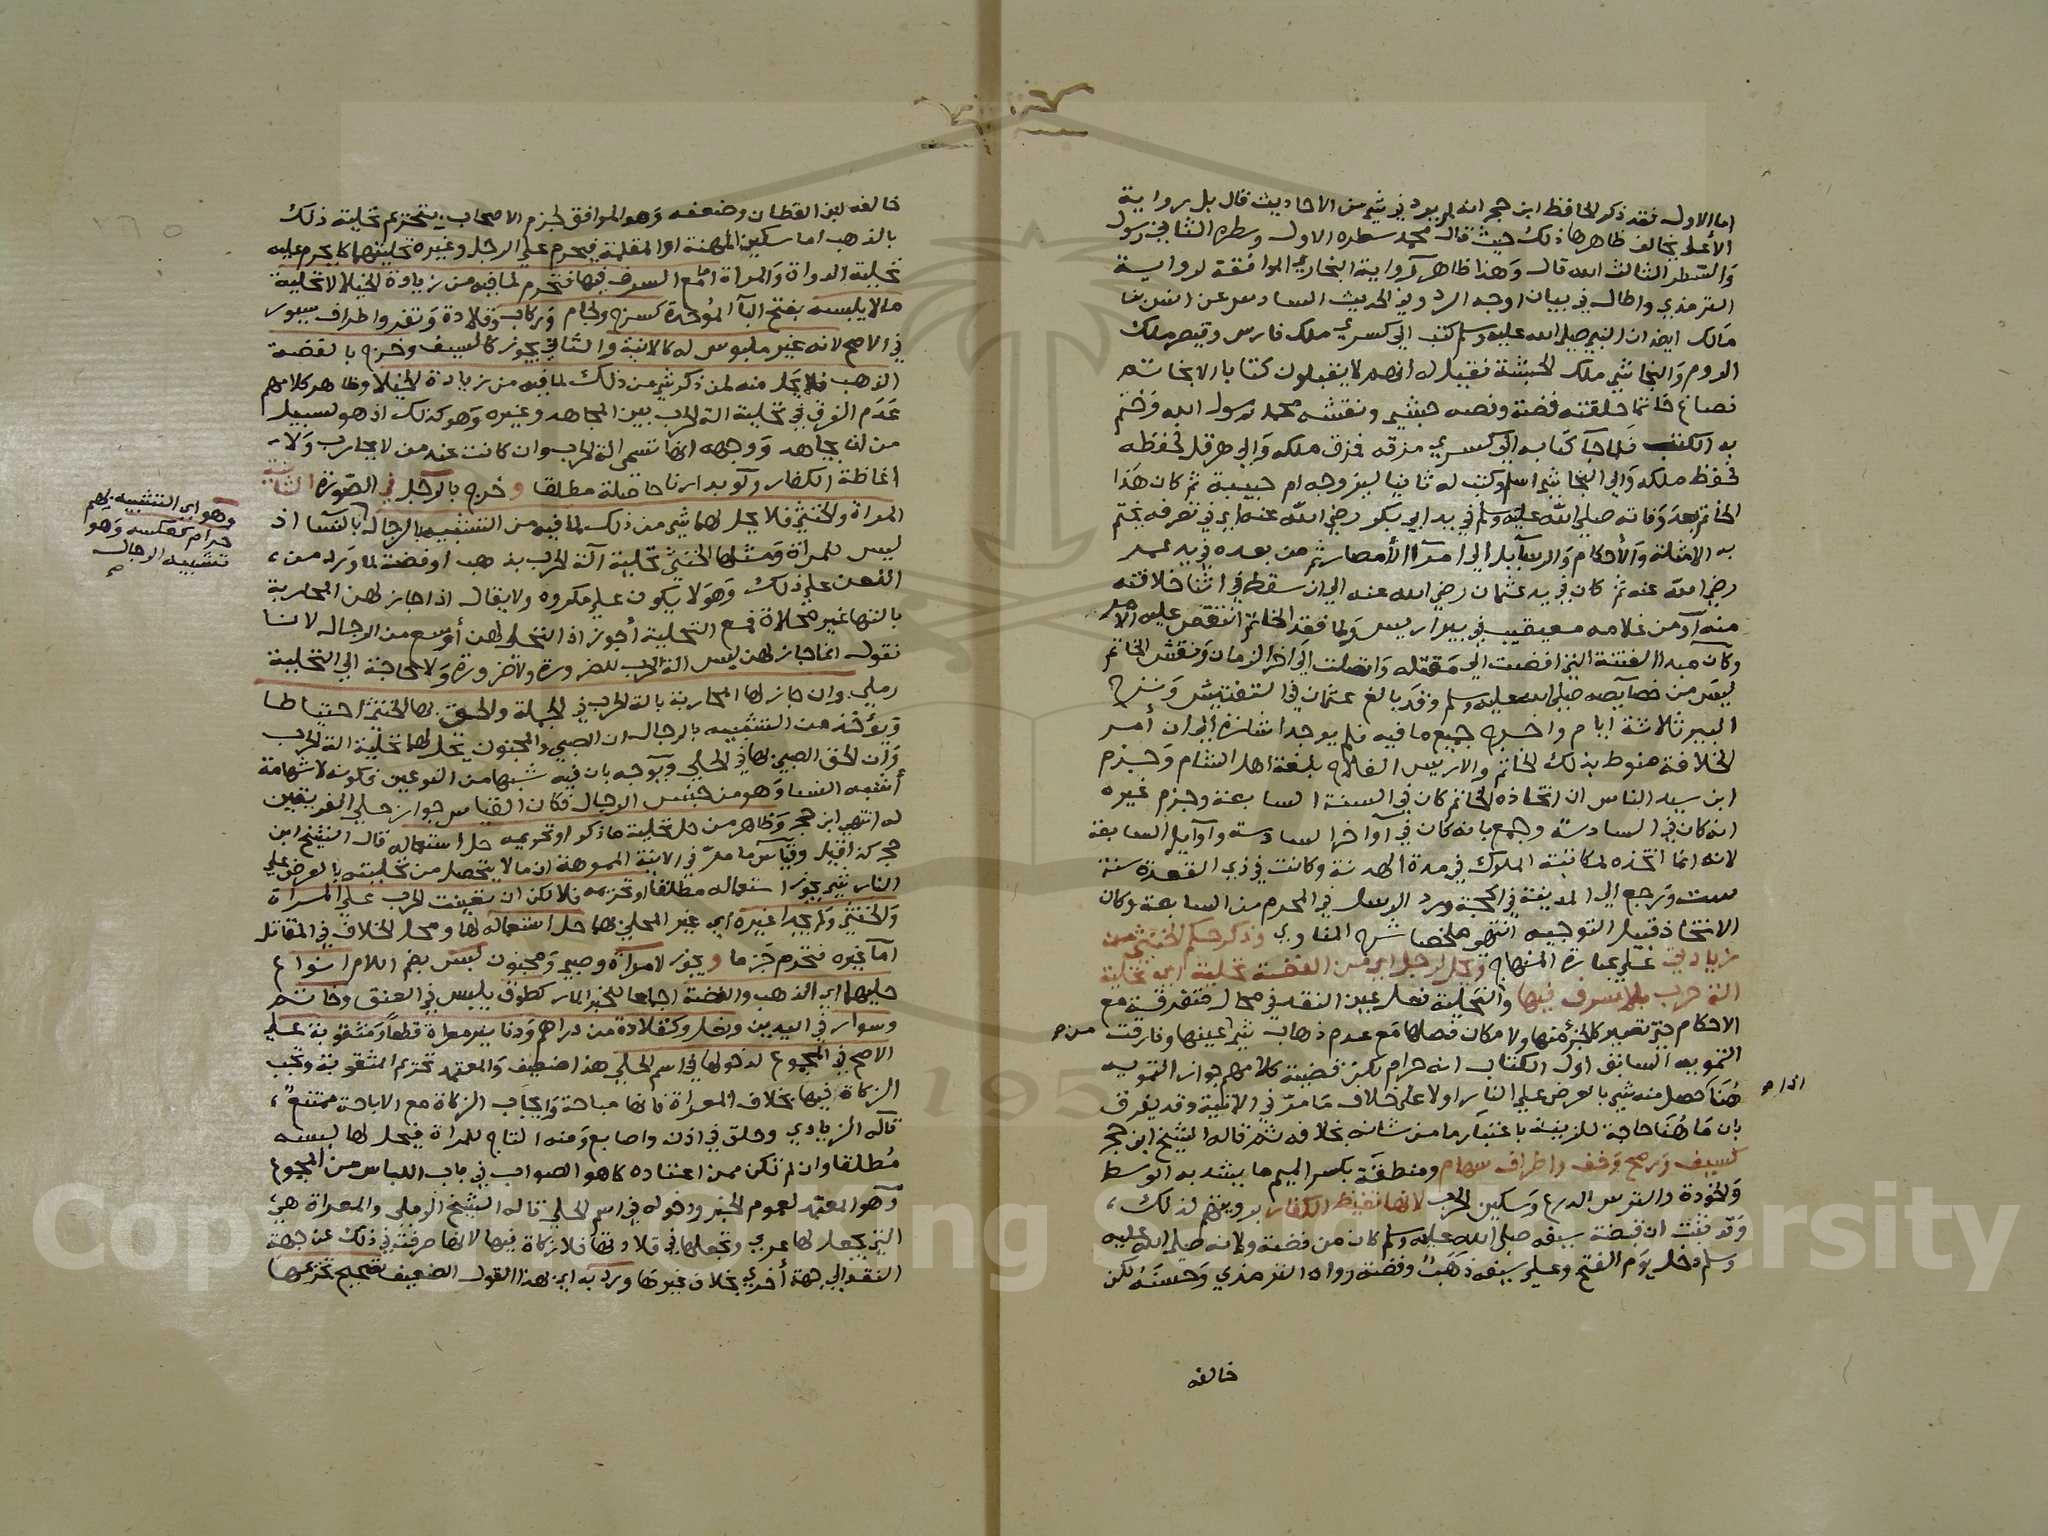 اما الاول فقد ذكر الحافظ ابن حجر انه لم يرد في شي من الاحاديث قال بل رواية
الأعلى يخالف ظاهرها ذلك حيث قال محمد سطره الاول وسطره الثاني رسول
والسطر الثالث الله قال وهذا ظاهر رواية البخاري الموافقة لرواية
الترمذي واطال في بيان اوجه الرد وفي الحديث السادس عن انس بن
مالك ايضا ان النبي صلى الله عليه وسلم كتب الي كسري ملك فارس وقيصر ملك
الروم والنجاشي ملك الحبشة فقيل له انهم لا يقبلون كتابا الا بخاتم
فصاغ خاتما حلقته فضة ونصه حبشي ونقشه محمد رسول الله وختم
به الكتب فلما جا كتابه الي كسري مزقه فمزق ملكه والي هرقل فحفظه
فحفظ ملكه والي النجاشي اسلم وكتب له ثانيا ليزوجه ام حبيبة ثم كان هذا
الخاتم بعد وفاته صلي الله عليه وسلم في يد ابي بكر رضي الله عنه اي في تصرفه يختم
به الامثلة والأحكام والرسايل الي امرآ الأمصار ثم من بعده في يد عمر
رضي الله عنه ثم كان في يد عثمان رضي الله عنه الي ان سقط في اثنا خلافته
منه او من غلامه معيقيب في بير اريس ولما فقد الخاتم انتقض عليه الامر
وكان مبدا الفتنة التي افضت الي مقتله واتصلت الي اخر الزمان ونقش الخاتم
ليس من خصايصه صلي الله عليه وسلم وقد بالغ عثمان في التفتيش ونزح
البير ثلاثة ايام واخرج جميع ما فيه فلم يوجد اشارة الي ان أمر
الخلافة منوط بذلك الخاتم والاريس الفلاح بلغة اهل الشام وجزم
ابن سيد الناس ان اتخاذه الخاتم كان في السنة السابعة وجزم غيره
انه كان في السادسة وجمع بانه كان في آواخر السادسة وآوايل السابعة
لانه انما اتخذه لمكاتبة الملوك في مدة الهدنة وكانت في ذي القعدة سنة
ست ورجع الي المدينة في الحجة ورد الرسل في المحرم من السابعة وكان
الاتخاذ قبيل التوجيه انتهي ملخصا شرح المناوي وذكر حكم الخنثي من
زيادتي علي عبارة المنهاج ويحل لرجل اي من الفضة تحلية اي تحلية
الة حرب بلا سرف فيها والتحلية فعل عين النقد في محال متفرقة مع
الاحكام حتي تصير كالجزء منها ولا مكان فصلها مع عدم ذهاب شي من عينها وفارقت
التمويه السابق اول الكتاب انه حرام لكن قضية كلامهم جواز التمويه
هنا حصل منه شي بالعرض علي النار اولا علي خلاف ما مر في الانية وقد يفرق
بان ما هنا حاجة للزينة باعتبار ما من شانه بخلافه ثم قاله الشيخ ابن حجر
كسيف ورمح وخف واطراف سهام ومنطقة بكسر الميم ما يشد به الوسط
والخوذة والترس الدرع وسكين الحرب لانها تغيظ الكفار
وقد ثبت ان قبضة سيفه صلي الله عليه وسلم كان من فضة ولانه صلي الله عليه
وسلم دخل يوم الفتح وعلي سيفه ذهب وفضة رواه الترمذي وحسنه لكن
خالفه
خالفه ابن القطان وضعفه وهو الموافق لجزم الاصحاب بتحريم تحلية ذلك
بالذهب اما سكين المهنة او المقلمة فيحرم علي الرجل وغيره تحليتهما كما يحرم عليه
تحلية الدواة والمرآة اما مع السرف فيها فتحرم لما فيه من زيادة الخيلا لا تحلية
ما لا يلبسه بفتح البآ الموحدة كسرج ولجام وركاب وقلادة وثفر واطراف سيور
في الاصح لانه غير ملبوس له كالانية والثاني يجوز كالسيف وخرج بالفضة
الذهب فلا يحل منه لمن ذكر شي من ذلك لما فيه من زيادة الخيلا وظاهر كلامهم
عدم الفرق في تحلية الة الحرب بين المجاهد وغيره وهو كذلك اذ هو بسبيل
من ان يجاهد ووجهه انها تسمي الة الحرب وان كانت عند من لا يحارب ولان
اغاظة الكفار ولو بدارنا حاصلة مطلقا وخرج بالرجل في الصورة الثانية
المرأة والخنثي فلا يحل لهما شي من ذلك لما فيه من التشبيه بالرجال اذ
ليس للمرأة ومثلها الخنثي تحلية آلة الحرب بذهب او فضة لما ورد من
اللعن علي ذلك وهو لا يكون علي مكروه ولا يقال اذا جاز لهن المحاربة
بالتها غير محلاة فمع التحلية أجوز اذ التحلي لهن أوسع من الرجال لانا
نقول انما جاز لهن لبس الة الحرب للضرورة ولا ضرورة ولا حاجة الي التحلية
رملي وان جاز لها المحاربة بالة الحرب في الجملة والحق بها الخنثي احتياطا
ويؤخذ من التشبيه بالرجال ان الصبي والمجنون يحل لهما تحلية الة الحرب
وان لحق الصبي بها في الحلي ويوجه بان فيه شبها من النوعين فلكونه لا شهامة
له أشبه النسا وهو من جنس الرجال فكان القياس جواز حلي الفريقين
له انتهي ابن حجر وظاهر من حل تحلية ما ذكر او تحريمه حل استعماله قال الشيخ ابن
حجر كذا قيل وقياس ما مر في الانية المموهة ان ما لا يتحصل من تحليته بالعرض علي
النار شي يجوز استعماله مطلقا او تحريمه فلا لكن ان تعينت الحرب علي المرأة
والخنثي ولم يجدا غيره اي غير المحلي لهما حل استعماله لها ومحل الخلاف في المقاتل
اما غيره فتحرم جزما ويجوز لامرأة وصبي ومجنون لبس بضم اللام انواع
حليهما اي الذهب والفضة اجماعا للخبر المار كطوق يلبس في العنق وخاتم
وسوار في اليدين ونعل وكقلادة من دراهم ودنانير معراة قطعا ومثقوبة علي
الاصح في المجموع لدخولها في اسم الحلي هذا ضعيف والمعتمد تحريم المثقوبة وتجب
الزكاة فيها بخلاف المعراة فانها مباحة وايجاب الزكاة مع الاباحة ممتنع
قاله الزيادي وحلق في اذن واصابع ومنه التاج للمرأة فيحل لها لبسه
مطلقا وان لم تكن ممن اعتاده كما هو الصواب في باب اللباس من المجموع
وهو المعتمد لعموم الخبر ودخوله في اسم الحلي قاله الشيخ الرملي والمعراة هي
التي يجعل لها عري وتجعلها في قلادتها فلا زكاة فيها لانها صرفت في ذلك عن جهة
النقد الي جهة أخري بخلاف غيرها ورد به اي بهذا القول الضعيف تصحيح تحريمها
وهو اي التشبيه بهم
حرام كعكسه وهو
تشبيه الرجال